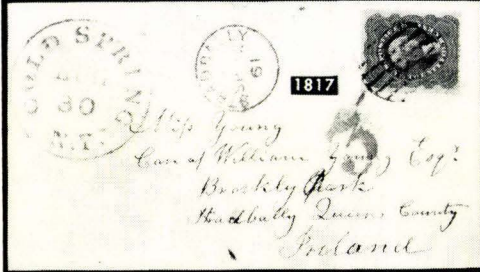 COLD SPRING
30
N.Y.
19
1817
Miss Young
Care of William Young Esqr
Brockly Park
Stradbally Queens County
Ireland